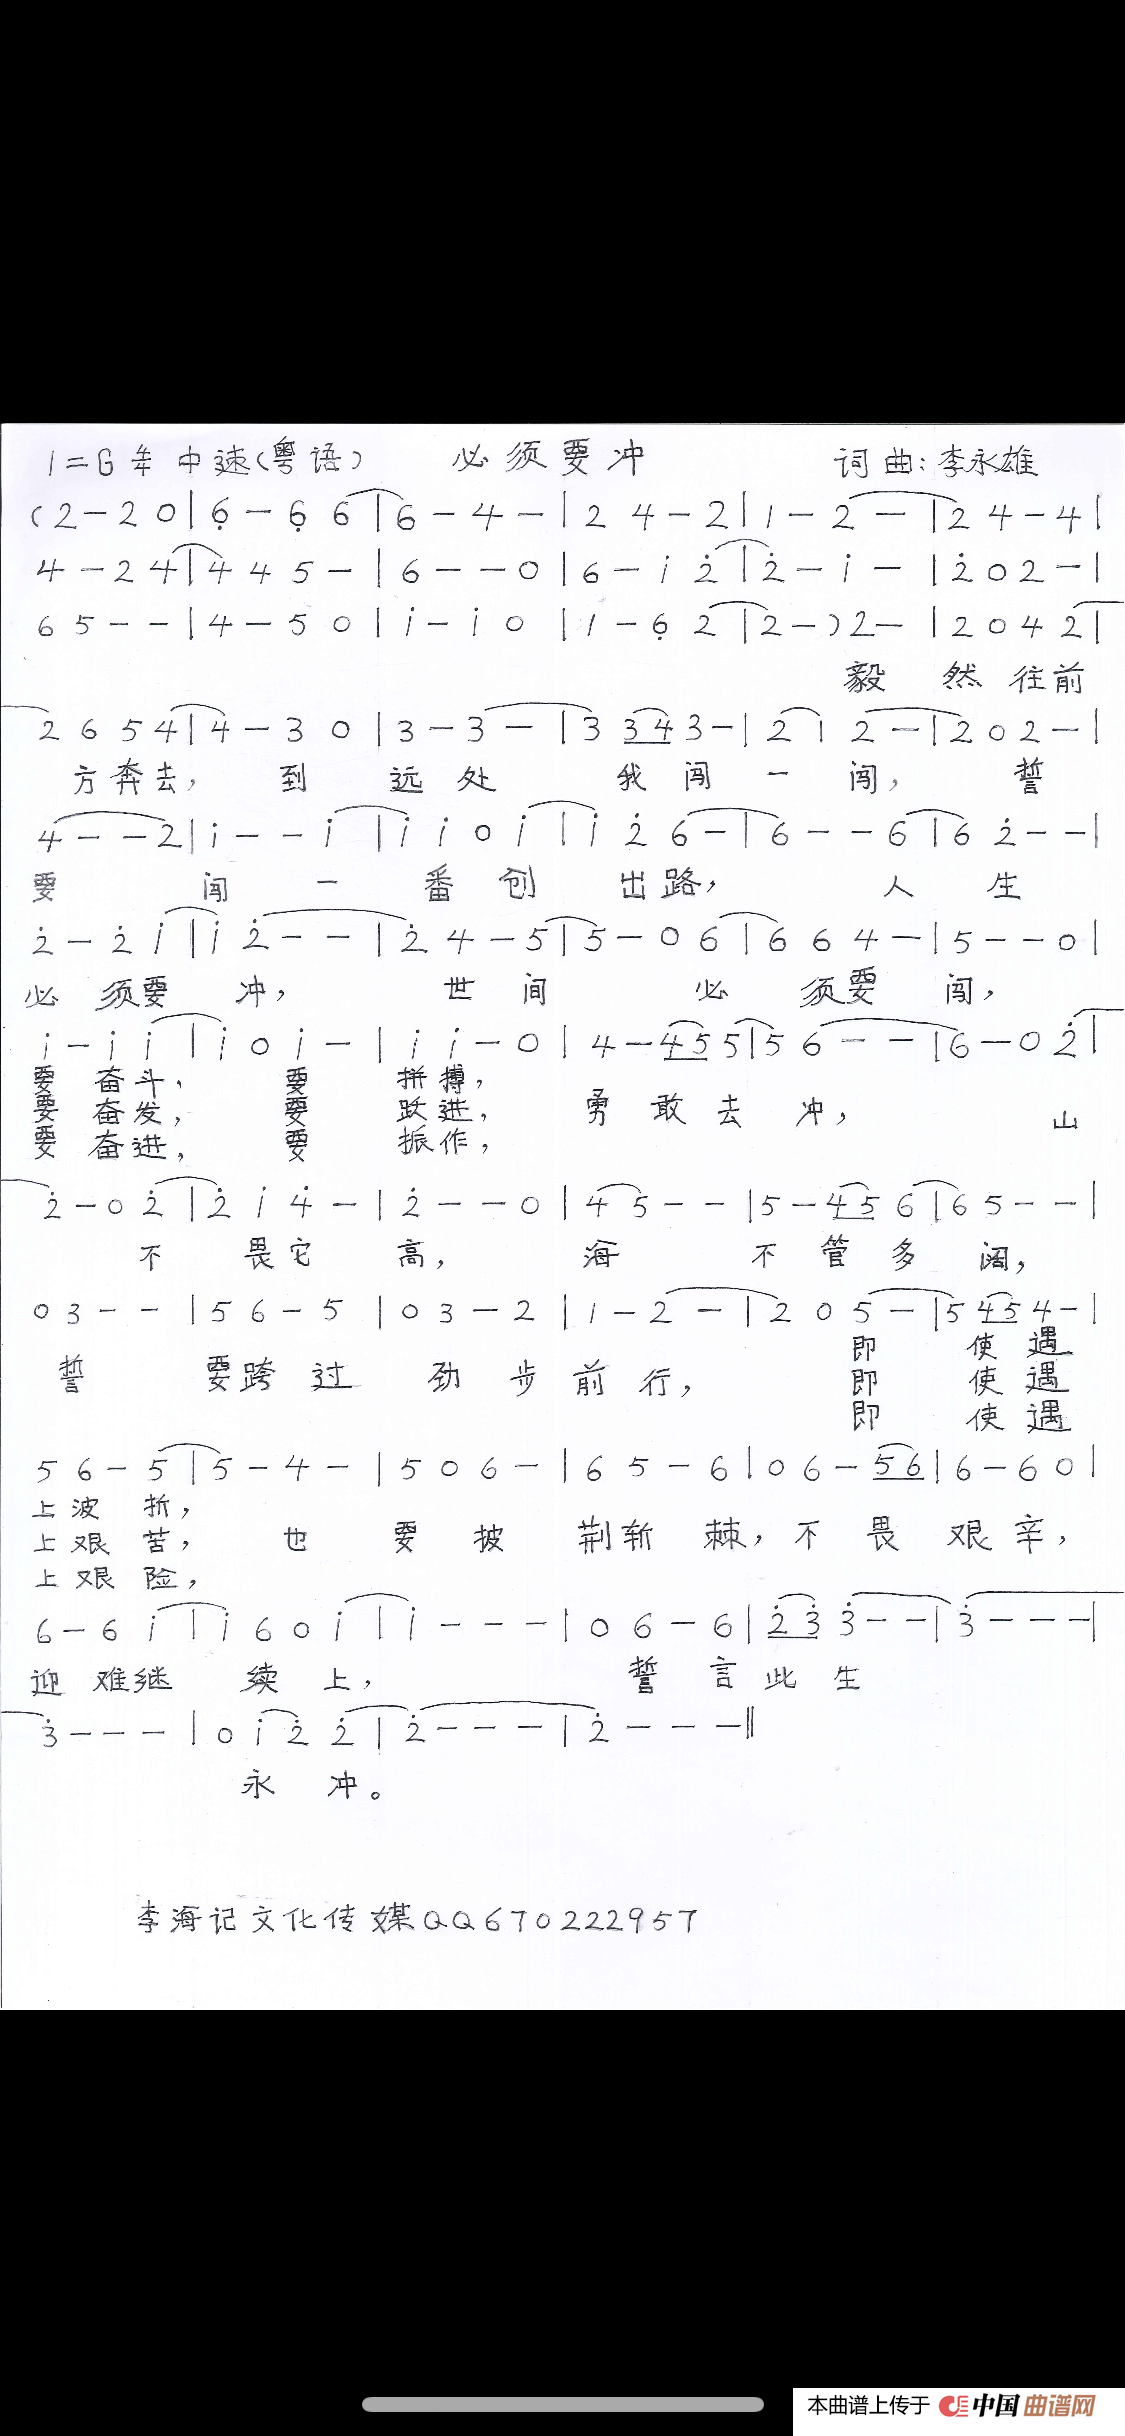 1=G 4/4 中速(粤语) 必须要冲 词曲:李永雄
(2-20|6̣-6̣6|6-4-|24-2|1-2-|24-4|
4-244|445-|6--0|6-i2̇|2̇-i-|2̇02-|
65--|4-50|i-i0|1-6̣2|2-)2-|2042|
毅然往前
2654|4-30|3-3-|3343-|212-|202-|
方奔去,到远处我闯一闯,誓
4--2|i--i|ii0i|i2̇6-|6--6|62̇--|
要闯一番创出路,人生
2̇-2̇i|i2̇--|2̇4-5|5-06|664-|5--0|
必须要冲,世间必须要闯,
i-ii|i0i-|ii-0|4-455|56--|6-02̇|
要奋斗,要拼搏,
要奋发,要跃进,勇敢去冲,山
要奋进,要振作,
2̇-02̇|2̇i4̇-|2̇--0|45--|5-456|65--|
不畏它高,海不管多阔,
03--|56-5|03-2|1-2-|205-|5454-|
即使遇
誓要跨过劲步前行,即使遇
即使遇
56-5|5-4-|506-|65-6|06-56|6-60|
上波折,
上艰苦,也要披荆斩棘,不畏艰辛,
上艰险,
6-6i|i60i|i---|06-6|2̇3̇3̇--|3̇---|
迎难继续上,誓言此生
3̇---|0i2̇2̇|2̇---|2̇---‖
永冲。
李海记文化传媒QQ670222957
本曲谱上传于 中国曲谱网